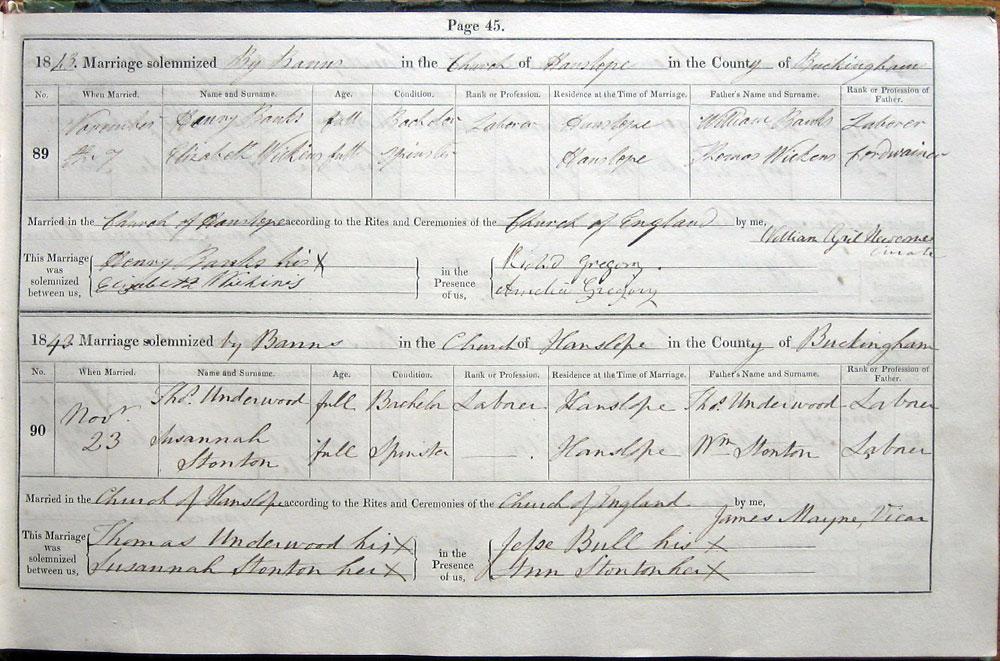 Page 45.
1843. Marriage solemnized By Banns in the Church of Hanslope in the County of Buckingham
No. When Married. Name and Surname. Age. Condition. Rank or Profession. Residence at the Time of Marriage. Father's Name and Surname. Rank or Profession of Father.
89 November Henry Banks full Bachelor Laborer Hanslope William Banks Laborer
the 7 Elizabeth Wickins full Spinster Hanslope Thomas Wickens Cordwainer
Married in the Church of Hanslope according to the Rites and Ceremonies of the Church of England by me,
William Newcome
Curate
This Marriage was solemnized between us, Henry Banks his X in the Presence of us, Richd Gregory.
Elizabeth Wickins Amelia Gregory
1843. Marriage solemnized by Banns in the Church of Hanslope in the County of Buckingham
No. When Married. Name and Surname. Age. Condition. Rank or Profession. Residence at the Time of Marriage. Father's Name and Surname. Rank or Profession of Father.
90 Novr. Thos. Underwood full Bachelor Laborer Hanslope Thos. Underwood Laborer
23 Susannah Stonton full Spinster Hanslope Wm Stonton Laborer
Married in the Church of Hanslope according to the Rites and Ceremonies of the Church of England by me,
James Mayne, Vicar
This Marriage was solemnized between us, Thomas Underwood his X in the Presence of us, Jesse Bull his X
Susannah Stonton her X Ann Stonton her X